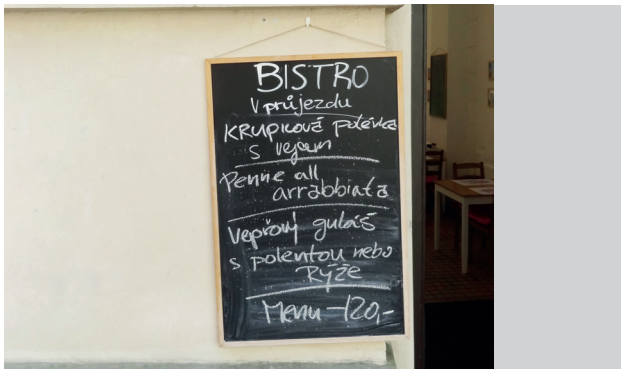 BISTRO
V průjezdu
KRUPICOVÁ polévka
s vejcem
Penne all
arrabbiata
Vepřový guláš
s polentou nebo
RýŽE
Menu -120,-